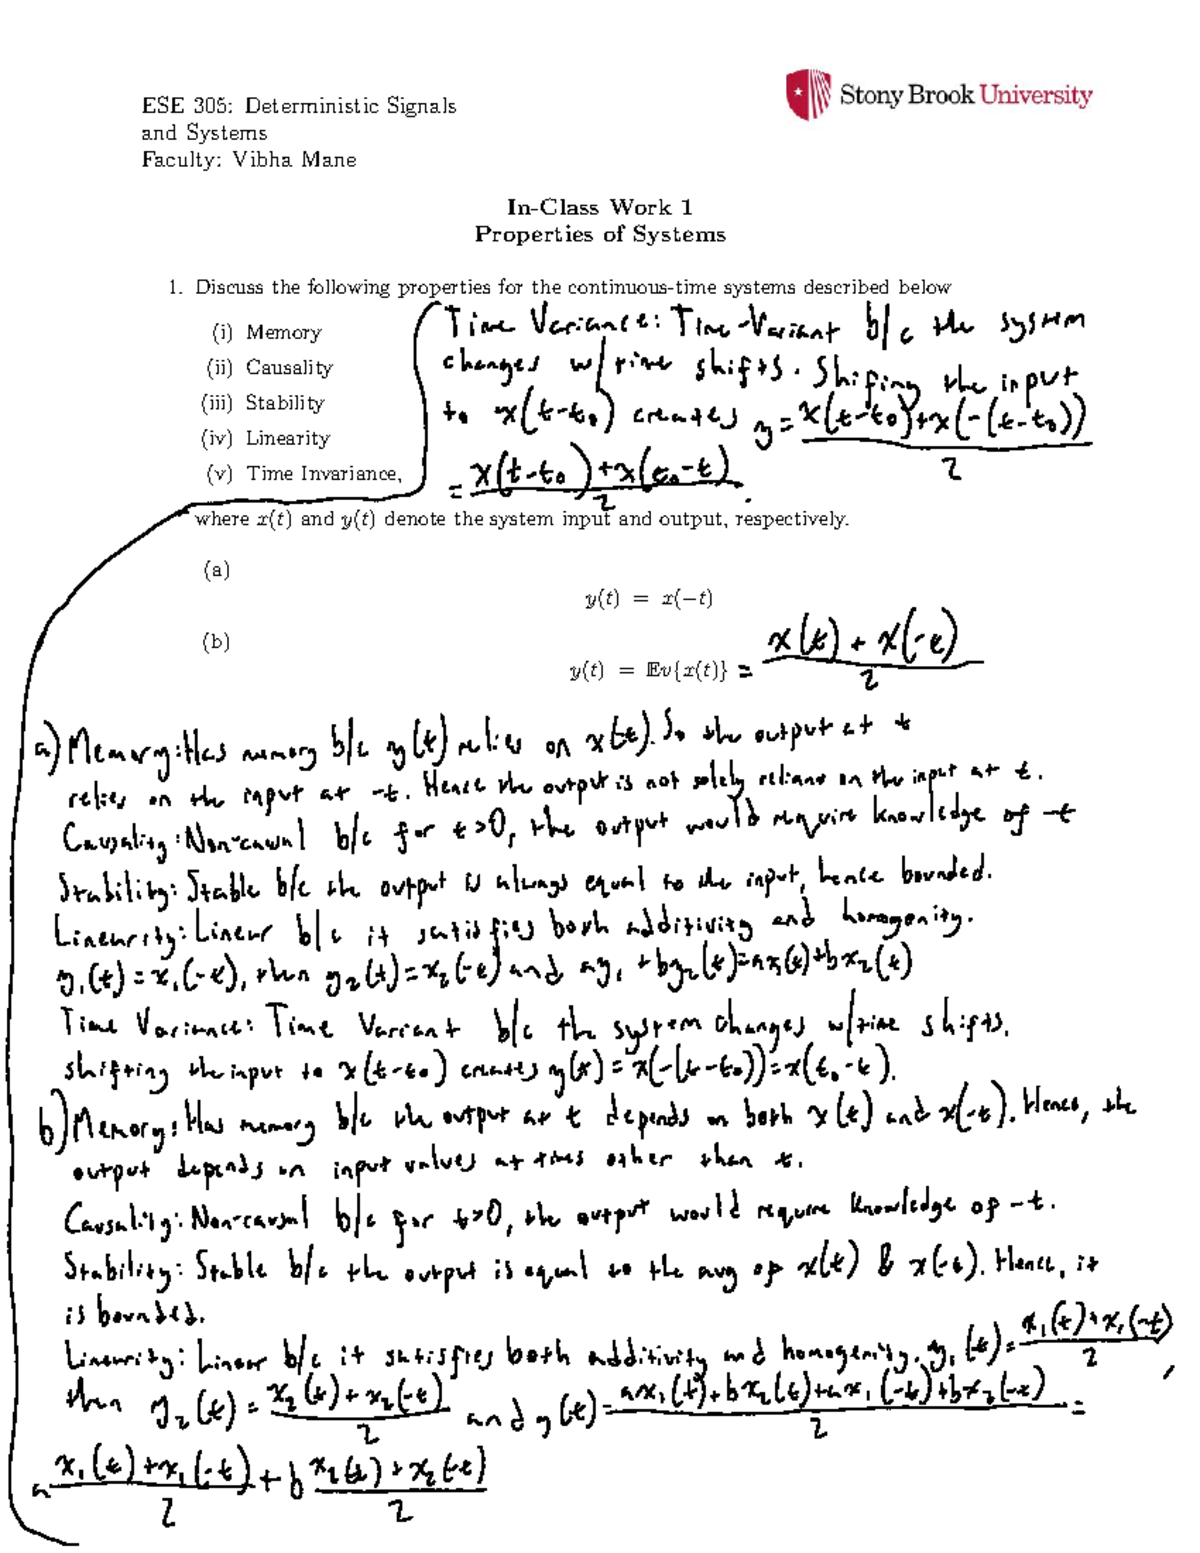 ESE 305: Deterministic Signals
and Systems
Faculty: Vibha Mane
Stony Brook University
In-Class Work 1
Properties of Systems
1. Discuss the following properties for the continuous-time systems described below
(i) Memory
(ii) Causality
(iii) Stability
(iv) Linearity
(v) Time Invariance,
Time Variance: Time-Variant b/c the system
changes w/time shifts. Shifing the input
to x(t-t₀) creates y = (x(t-t₀)+x(-(t-t₀)))/2
= (x(t-t₀)+x(t₀-t))/2.
where x(t) and y(t) denote the system input and output, respectively.
(a)
y(t) = x(−t)
(b)
y(t) = 𝔼v{x(t)} = (x(t) + x(-t))/2
a) Memory: Has memory b/c y(t) relies on x(-t). So the output at t
relies on the input at -t. Hence the output is not solely reliant on the input at t.
Causality: Non-causal b/c for t>0, the output would require knowledge of -t
Stability: Stable b/c the output is always equal to the input, hence bounded.
Linearity: Linear b/c it satisfies both additivity and homogenity.
y₁(t) = x₁(-t), then y₂(t) = x₂(-t) and ay₁ + by₂(t) = ax₁(t) + bx₂(t)
Time Variance: Time Variant b/c the system changes w/time shifts.
shifting the input to x(t-t₀) creates y(t) = x(-(t-t₀)) = x(t₀-t).
b) Memory: Has memory b/c the output at t depends on both x(t) and x(-t). Hence, the
output depends on input values at times other than t.
Causality: Non-causal b/c for t>0, the output would require knowledge of -t.
Stability: Stable b/c the output is equal to the avg of x(t) & x(-t). Hence, it
is bounded.
Linearity: Linear b/c it satisfies both additivity and homogenity. y₁(t) = (x₁(t)+x₁(-t))/2,
then y₂(t) = (x₂(t)+x₂(-t))/2 and y(t) = (ax₁(t)+bx₂(t)+ax₁(-t)+bx₂(-t))/2 =
a (x₁(t)+x₁(-t))/2 + b (x₂(t)+x₂(-t))/2